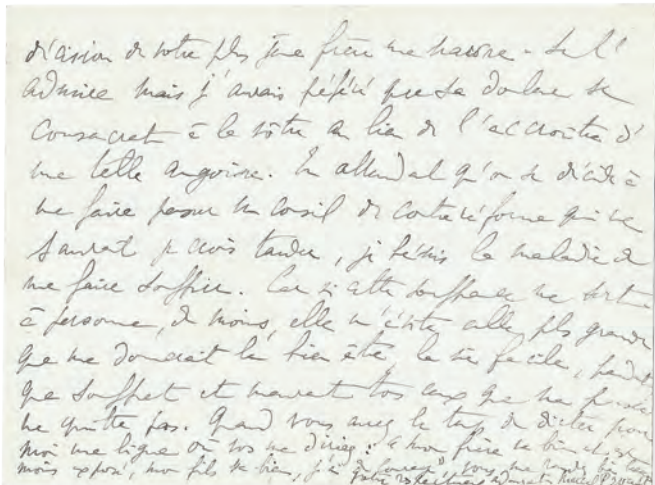 décision de votre plus jeune frère me navre. Je l'
admire mais j'avais préféré que sa douleur se
consacrât à la vôtre au lieu de l'accroître d'
une telle angoisse. En attendant qu'on se décide à
me faire passer un conseil de contre réforme qui ne
saurait je crois tarder, je bénis la maladie de
me faire souffrir. Car si cette souffrance ne sert
à personne, du moins, elle m'évite celle plus grande
que me donnerait le bien être la vie facile, pendant
que souffrent et meurent tous ceux que ma pensée
ne quitte pas. Quand vous aurez le temps de dicter pour
moi une ligne où vous me diriez : "mon frère va bien et est
moins exposé, mon fils va bien, j'ai du courage" vous me
Votre respectueux admirateur Marcel Proust